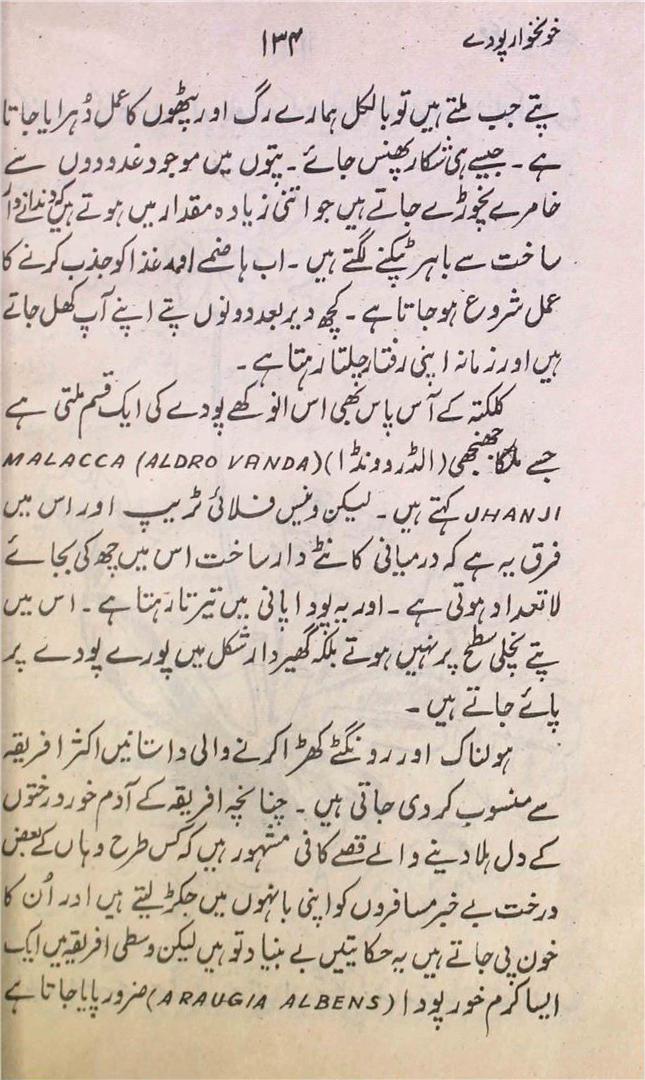 خونخوار پودے
۱۳۴
پتے جب ملتے ہیں تو بالکل ہمارے رگ اور پٹھوں کا عمل دُہرایا جاتا
ہے ۔ جیسے ہی شکار پھنس جائے ۔ پتوں میں موجود غدودوں سے
خامرے نچوڑے جاتے ہیں جو اتنی زیادہ مقدار میں ہوتے ہیں کہ دندانے دار
ساخت سے باہر ٹپکنے لگتے ہیں ۔ اب ہاضمے اور غذا کو جذب کرنے کا
عمل شروع ہو جاتا ہے ۔ کچھ دیر بعد دونوں پتے اپنے آپ کھل جاتے
ہیں اور زمانہ اپنی رفتار چلتا رہتا ہے ۔
کلکتہ کے آس پاس بھی اس انوکھے پودے کی ایک قسم ملتی ہے
جسے ملاکا جھنجھی (الڈروونڈا) MALACCA (ALDRO VANDA)
JHANJI کہتے ہیں ۔ لیکن وینس فلائی ٹریپ اور اس میں
فرق یہ ہے کہ درمیانی کانٹے دار ساخت اس میں چھ کی بجائے
لاتعداد ہوتی ہے ۔ اور یہ پودا پانی میں تیرتا رہتا ہے ۔ اس میں
پتے نچلی سطح پر نہیں ہوتے بلکہ گھیردار شکل میں پورے پودے پر
پائے جاتے ہیں ۔
ہولناک اور رونگٹے کھڑا کرنے والی داستانیں اکثر افریقہ
سے منسوب کر دی جاتی ہیں ۔ چنانچہ افریقہ کے آدم خور درختوں
کے دل ہلا دینے والے قصے کافی مشہور ہیں کہ کس طرح وہاں کے بعض
درخت بے خبر مسافروں کو اپنی بانہوں میں جکڑ لیتے ہیں اور اُن کا
خون پی جاتے ہیں یہ حکایتیں بے بنیاد تو ہیں لیکن وسطی افریقہ میں ایک
ایسا کرم خور پودا (ARAUGIA ALBENS) ضرور پایا جاتا ہے